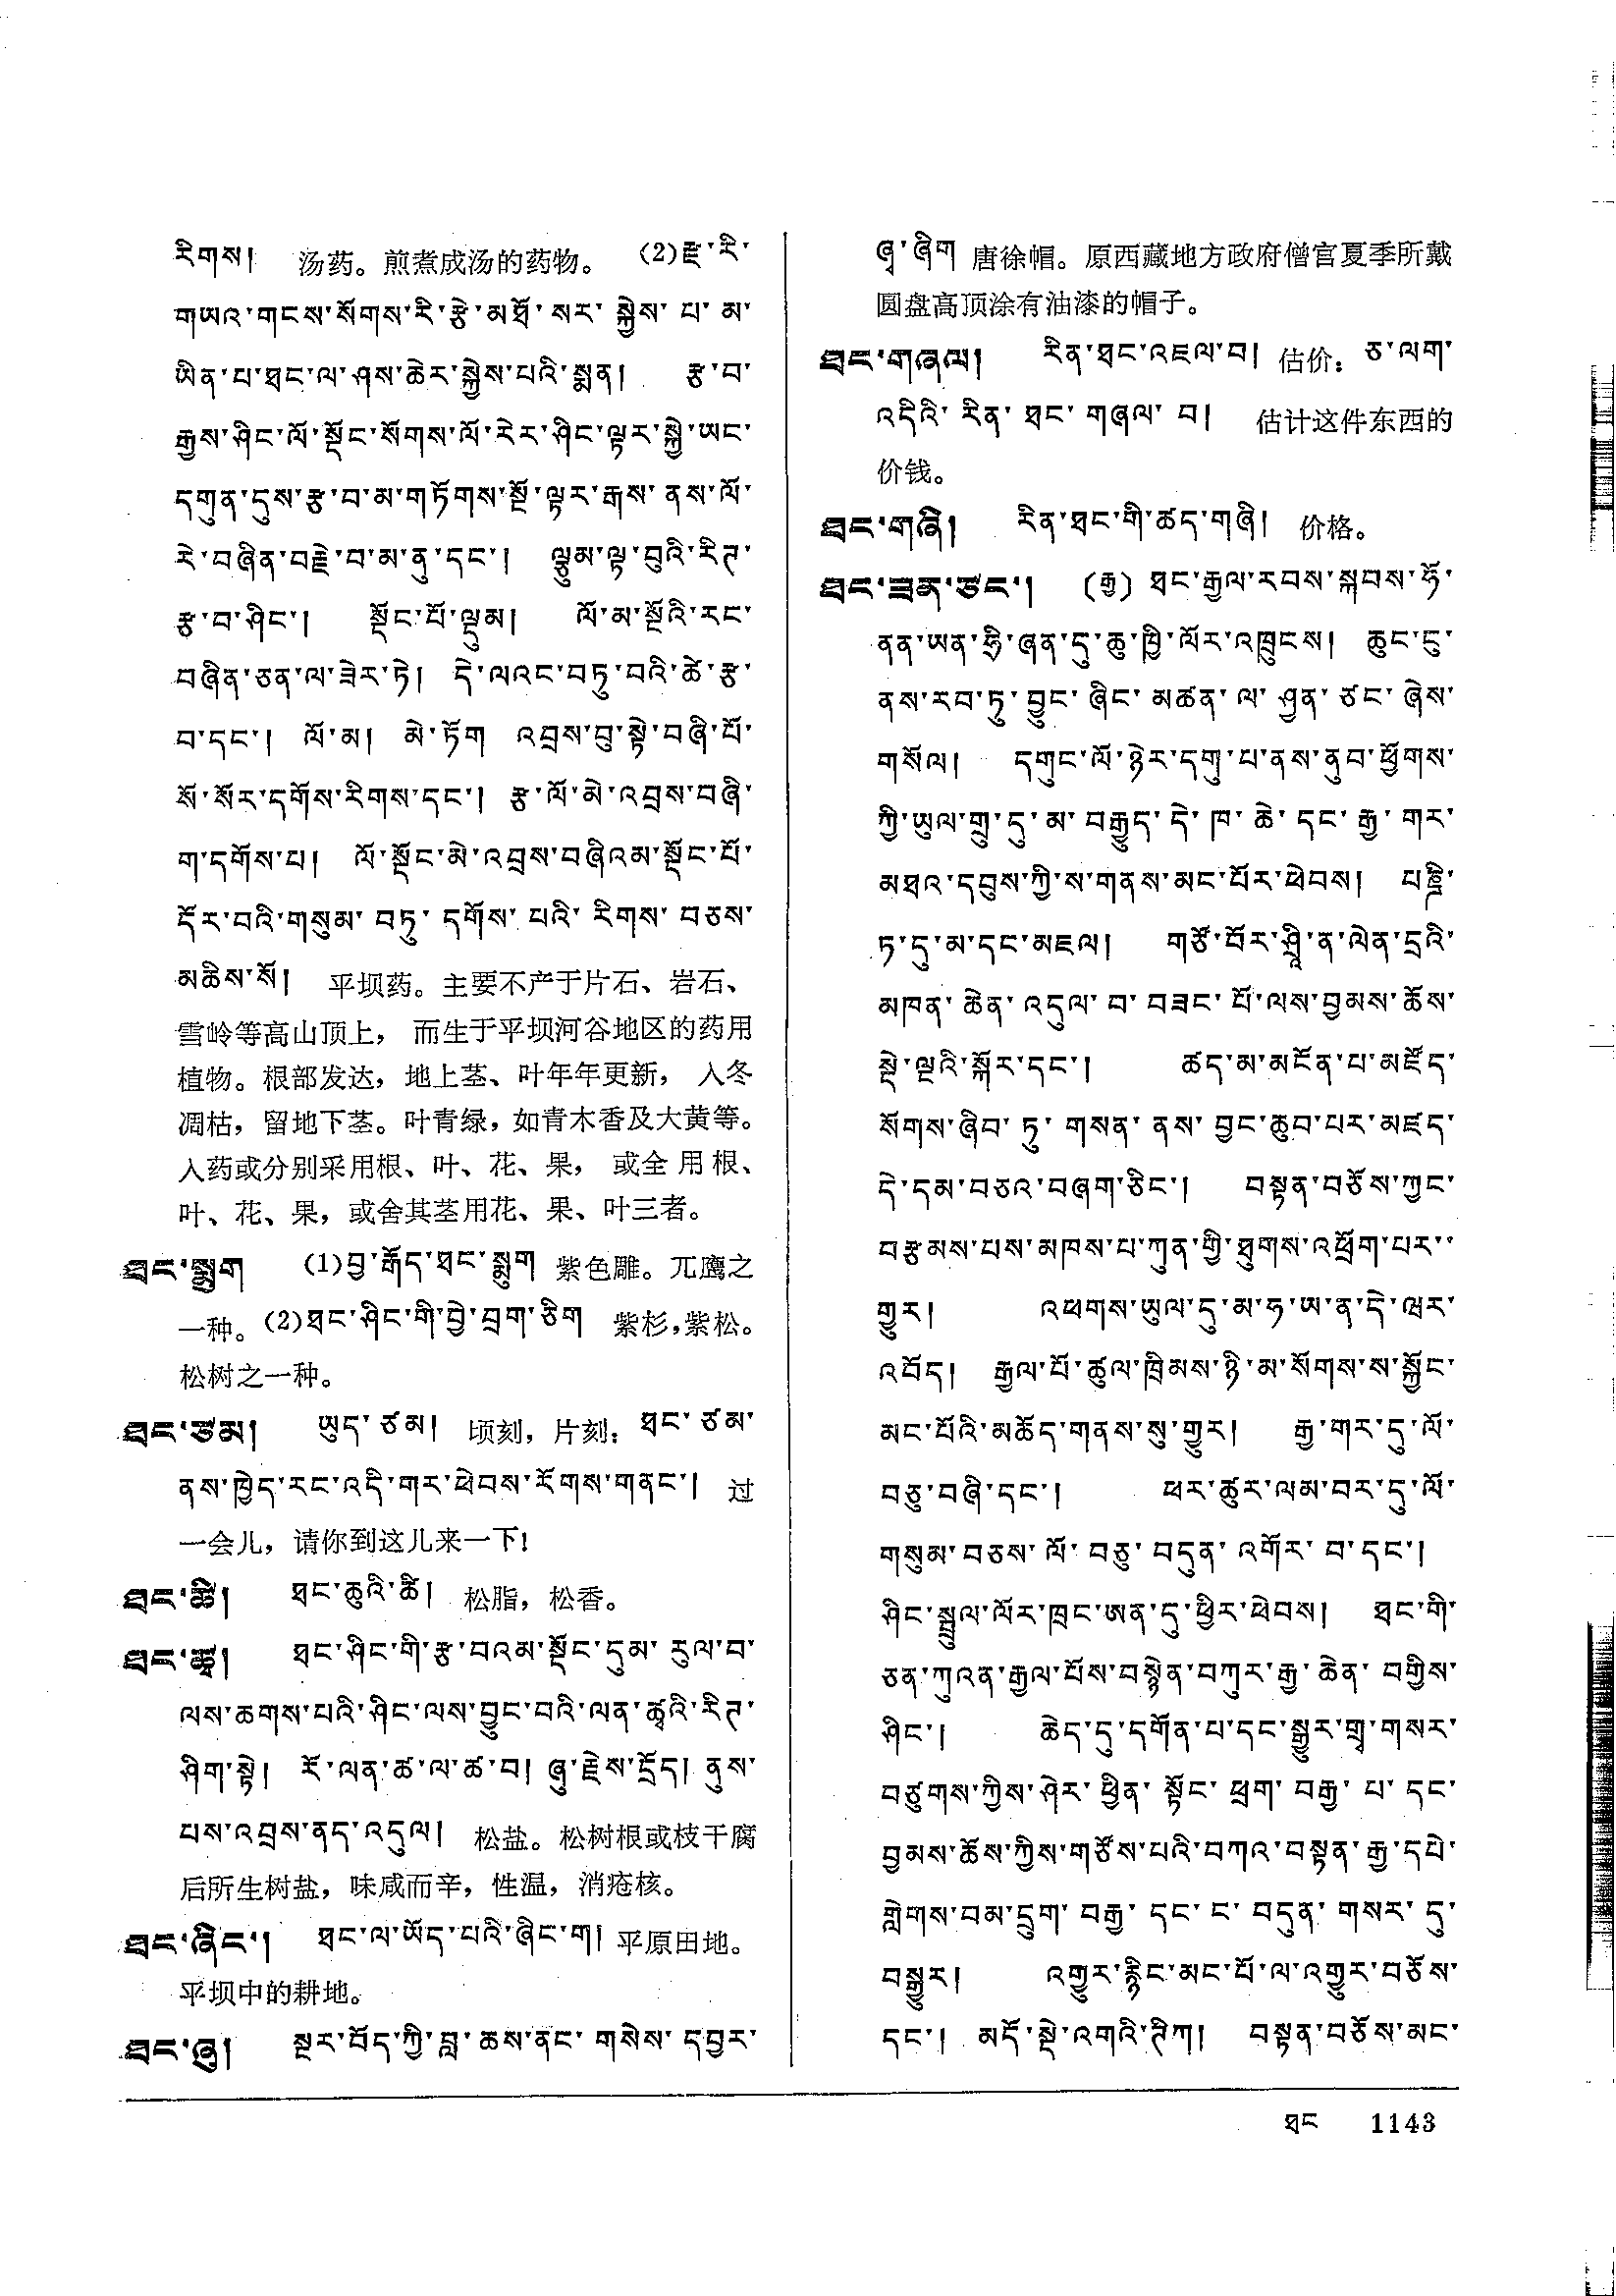 རིགས། 汤药。煎煮成汤的药物。 (2)རྫ་རི་
གཡའ་གངས་སོགས་རི་རྩེ་མཐོ་སར་སྐྱེས་པ་མ་
ཡིན་པ་ཐང་ལ་ཤས་ཆེར་སྐྱེས་པའི་སྨན། རྩ་བ་
རྒྱས་ཤིང་ལོ་སྡོང་སོགས་ལོ་རེར་ཤིང་ལྟར་སྐྱེ་ཡང་
དགུན་དུས་རྩ་བ་མ་གཏོགས་སྔོ་ལྟར་རྒས་ནས་ལོ་
རེ་བཞིན་བརྗེ་བ་མ་ནུ་དང་། ལྕུམ་ལྟ་བུའི་རིཊ་
རྩ་བ་ཤིང་། སྡོང་པོ་ལྡུམ། ལོ་མ་སྔོའི་རང་
བཞིན་ཅན་ལ་ཟེར་ཏེ། དེ་ལའང་བཏུ་བའི་ཚེ་རྩ་
བ་དང་། ལོ་མ། མེ་ཏོག འབྲས་བུ་སྟེ་བཞི་པོ་
སོ་སོར་དགོས་རིགས་དང་། རྩ་ལོ་མེ་འབྲས་བཞི་
ག་དགོས་པ། ལོ་སྡོང་མེ་འབྲས་བཞིའམ་སྡོང་པོ་
དོར་བའི་གསུམ་བཏུ་དགོས་པའི་རིགས་བཅས་
མཆིས་སོ། 平坝药。主要不产于片石、岩石、
雪岭等高山顶上，而生于平坝河谷地区的药用
植物。根部发达，地上茎、叶年年更新，入冬
凋枯，留地下茎。叶青绿，如青木香及大黄等。
入药或分别采用根、叶、花、果，或全用根、
叶、花、果，或舍其茎用花、果、叶三者。
ཐང་སྨུག (1)བྱ་རྒོད་ཐང་སྨུག 紫色雕。兀鹰之
一种。(2)ཐང་ཤིང་གི་བྱེ་བྲག་ཅིག 紫杉，紫松。
松树之一种。
ཐང་ཙམ། ཡུད་ཙམ། 顷刻，片刻：ཐང་ཙམ་
ནས་ཁྱེད་རང་འདི་གར་ཕེབས་རོགས་གནང་། 过
一会儿，请你到这儿来一下！
ཐང་ཚི། ཐང་ཆུའི་ཚི། 松脂，松香。
ཐང་ཚྭ། ཐང་ཤིང་གི་རྩ་བའམ་སྡོང་དུམ་རུལ་བ་
ལས་ཆགས་པའི་ཤིང་ལས་བྱུང་བའི་ལན་ཚྭའི་རིཊ་
ཤིག་སྟེ། རོ་ལན་ཚ་ལ་ཚ་བ། ཞུ་རྗེས་དྲོད། ནུས་
པས་འབྲས་ནད་འདུལ། 松盐。松树根或枝干腐
后所生树盐，味咸而辛，性温，消疮核。
ཐང་ཞིང་། ཐང་ལ་ཡོད་པའི་ཞིང་ག། 平原田地。
平坝中的耕地。
ཐང་ཞུ། སྔར་བོད་ཀྱི་བླ་ཆས་ནང་གསེས་དབྱར་
ཞྭ་ཞིག 唐徐帽。原西藏地方政府僧官夏季所戴
圆盘高顶涂有油漆的帽子。
ཐང་གཞལ། རིན་ཐང་འཇལ་བ། 估价：ཅ་ལག་
འདིའི་རིན་ཐང་གཞལ་བ། 估计这件东西的
价钱。
ཐང་གཞི། རིན་ཐང་གི་ཚད་གཞི། 价格。
ཐང་ཟན་ཙང་། (རྒྱ) ཐང་རྒྱལ་རབས་སྐབས་ཧོ་
ནན་ཡན་ཧྲི་ཞན་དུ་ཆུ་ཁྱི་ལོར་འཁྲུངས། ཆུང་ངུ་
ནས་རབ་ཏུ་བྱུང་ཞིང་མཚན་ལ་ཤྱན་ཙང་ཞེས་
གསོལ། དགུང་ལོ་ཉེར་དགུ་པ་ནས་ནུབ་ཕྱོགས་
ཀྱི་ཡུལ་གྲུ་དུ་མ་བརྒྱུད་དེ་ཁ་ཆེ་དང་རྒྱ་གར་
མཐའ་དབུས་ཀྱི་ས་གནས་མང་པོར་ཕེབས། པཎྜི་
ཏ་དུ་མ་དང་མཇལ། གཙོ་བོར་ཤྲཱི་ན་ལེན་དྲའི་
མཁན་ཆེན་འདུལ་བ་བཟང་པོ་ལས་བྱམས་ཆོས་
སྡེ་ལྔའི་སྐོར་དང་། ཚད་མ་མངོན་པ་མཛོད་
སོགས་ཞིབ་ཏུ་གསན་ནས་བྱང་ཆུབ་པར་མཛད་
དེ་དམ་བཅའ་བཞག་ཅིང་། བསྟན་བཅོས་ཀྱང་
བརྩམས་པས་མཁས་པ་ཀུན་གྱི་ཐུགས་འཕྲོག་པར་
གྱུར། འཕགས་ཡུལ་དུ་མ་ཧ་ཨ་ན་དེ་ཝར་
འབོད། རྒྱལ་པོ་ཚུལ་ཁྲིམས་ཉི་མ་སོགས་ས་སྐྱོང་
མང་པོའི་མཆོད་གནས་སུ་གྱུར། རྒྱ་གར་དུ་ལོ་
བཅུ་བཞི་དང་། ཕར་ཚུར་ལམ་བར་དུ་ལོ་
གསུམ་བཅས་ལོ་བཅུ་བདུན་འགོར་བ་དང་།
ཤིང་སྦྲུལ་ལོར་ཁྲང་ཨན་དུ་ཕྱིར་ཕེབས། ཐང་གི་
ཅན་ཀུའན་རྒྱལ་པོས་བསྙེན་བཀུར་རྒྱ་ཆེན་བགྱིས་
ཤིང་། ཆེད་དུ་དགོན་པ་དང་སྒྱུར་གྲྭ་གསར་
བཙུགས་ཀྱིས་ཤེར་ཕྱིན་སྟོང་ཕྲག་བརྒྱ་པ་དང་
བྱམས་ཆོས་ཀྱིས་གཙོས་པའི་བཀའ་བསྟན་རྒྱ་དཔེ་
གླེགས་བམ་དྲུག་བརྒྱ་དང་ང་བདུན་གསར་དུ་
བསྒྱུར། འགྱུར་རྙིང་མང་པོ་ལ་འགྱུར་བཅོས་
དང་། མདོ་སྡེ་འགའི་ཊིཀ། བསྟན་བཅོས་མང་
ཐང 1143